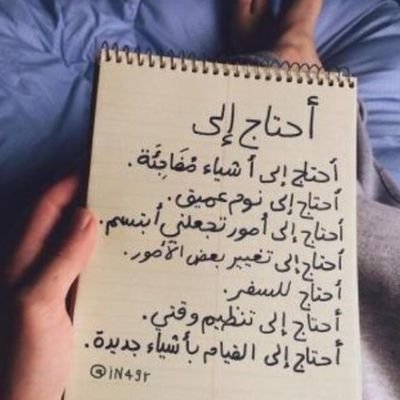 أحتاج إلى
أحتاج إلى أشياء مُفَاجِئَة.
أحتاج إلى نوم عميق.
أحتاج إلى أمور تجعلني أبتسم.
أحتاج إلى تغيير بعض الأمور.
أحتاج للسفر.
أحتاج إلى تنظيم وقتي.
أحتاج إلى القيام بأشياء جديدة.
@iN49r